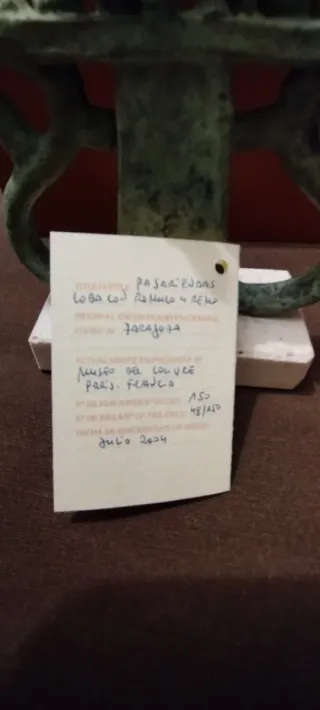 PASARIENDAS
LOBA CON ROMULO Y REMO
ORIGINAL ENCONTRADO
ZARAGOZA
ACTUALMENTE
MUSEO DEL LOUVRE
PARIS. FRANCIA
Nº DE 150
Nº DE 48/150
FECHA DE
Julio 2004